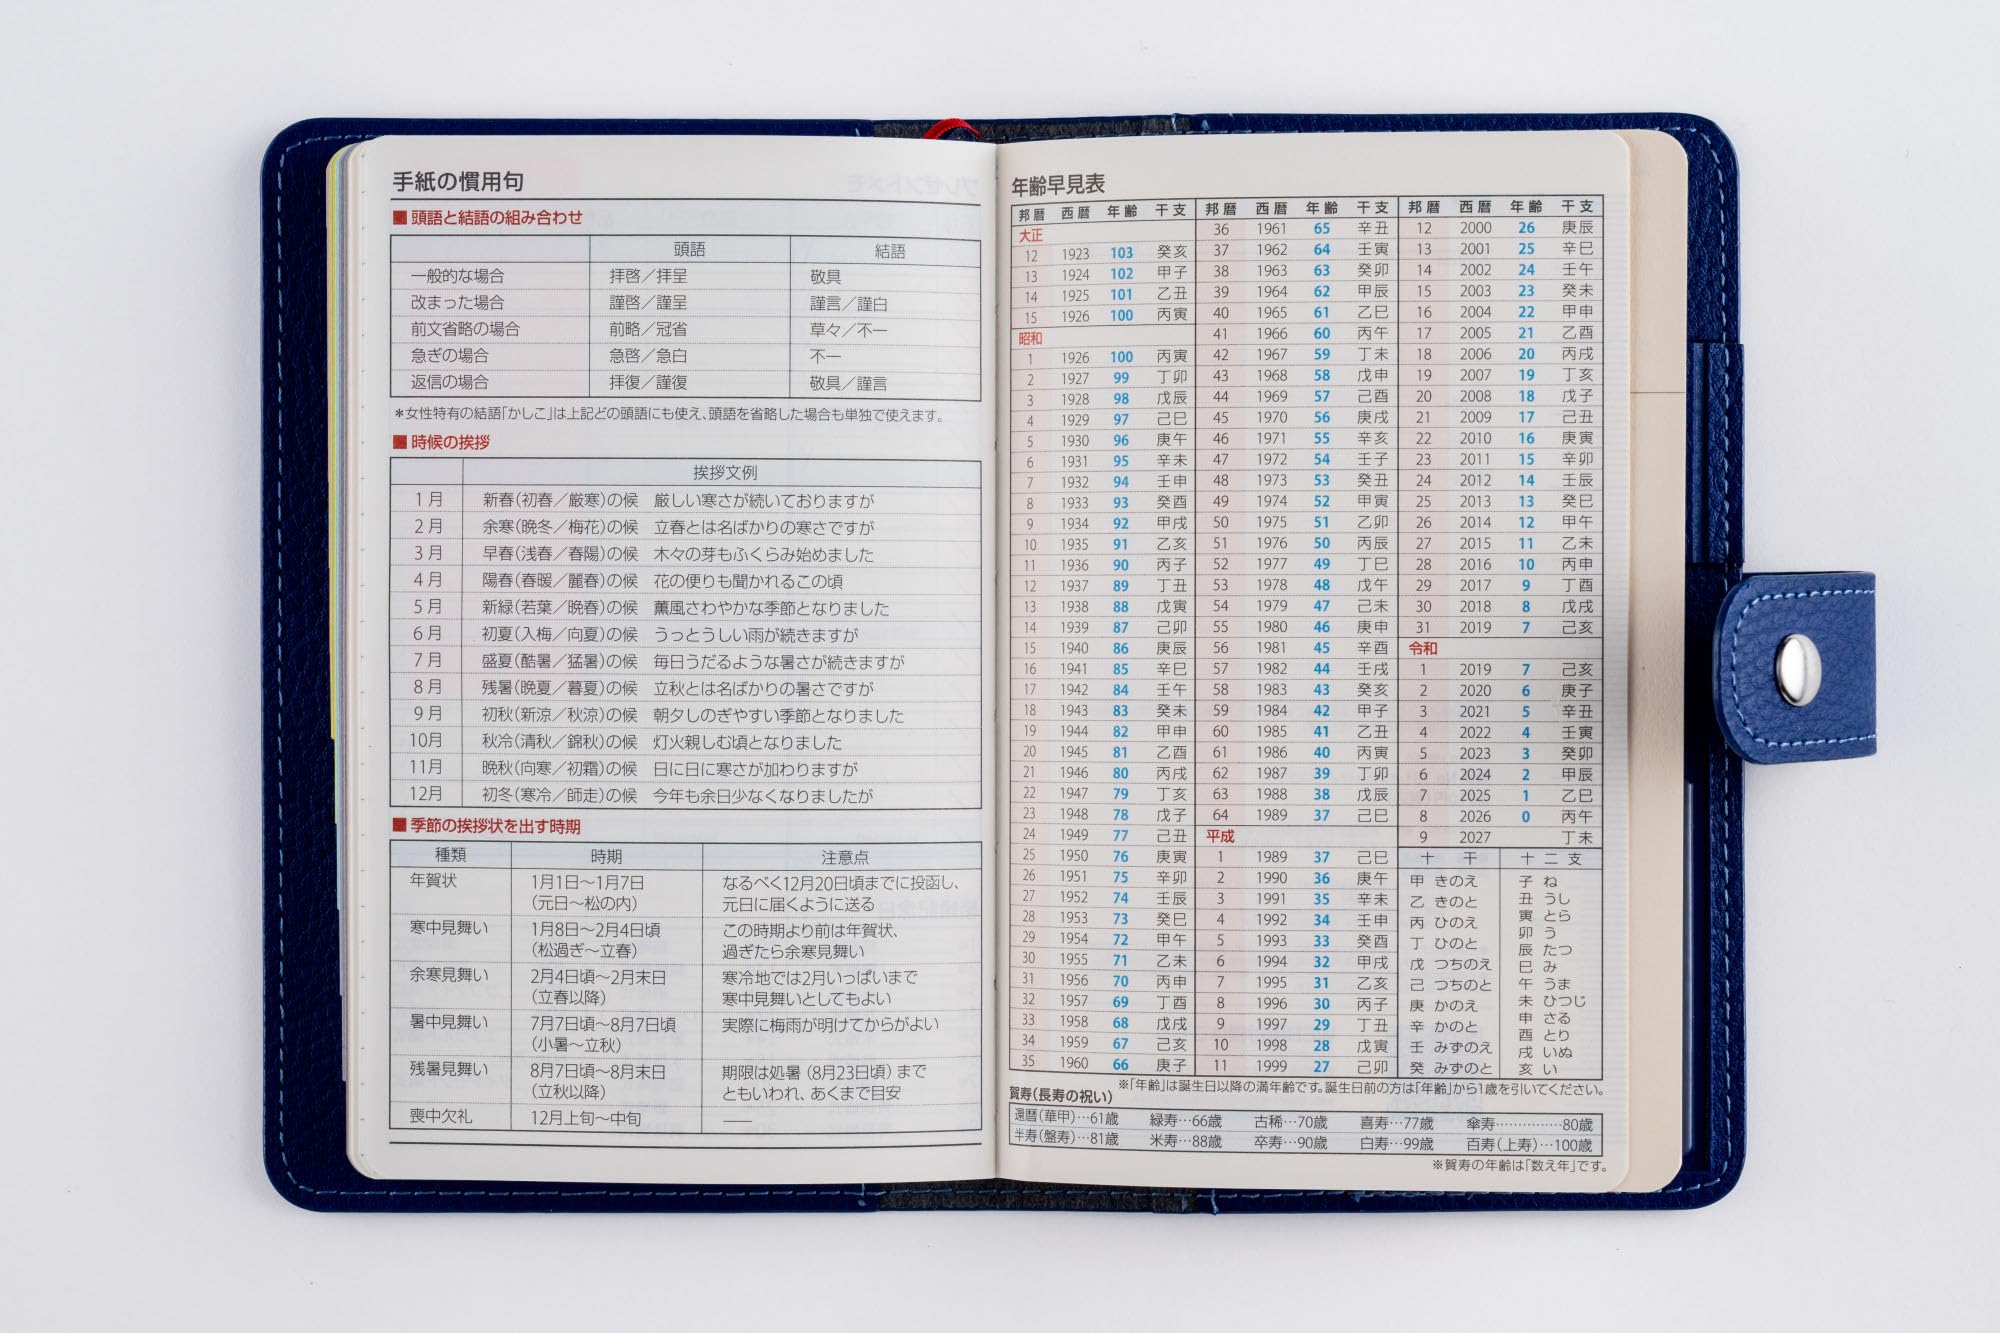 手紙の慣用句
■ 頭語と結語の組み合わせ
頭語 結語
一般的な場合 拝啓／拝呈 敬具
改まった場合 謹啓／謹呈 謹言／謹白
前文省略の場合 前略／冠省 草々／不一
急ぎの場合 急啓／急白 不一
返信の場合 拝復／謹復 敬具／謹言
＊女性特有の結語「かしこ」は上記どの頭語にも使え、頭語を省略した場合も単独で使えます。
■ 時候の挨拶
挨拶文例
1月 新春(初春／厳寒)の候 厳しい寒さが続いておりますが
2月 余寒(晩冬／梅花)の候 立春とは名ばかりの寒さですが
3月 早春(浅春／春陽)の候 木々の芽もふくらみ始めました
4月 陽春(春暖／麗春)の候 花の便りも聞かれるこの頃
5月 新緑(若葉／晩春)の候 薫風さわやかな季節となりました
6月 初夏(入梅／向夏)の候 うっとうしい雨が続きますが
7月 盛夏(酷暑／猛暑)の候 毎日うだるような暑さが続きますが
8月 残暑(晩夏／暮夏)の候 立秋とは名ばかりの暑さですが
9月 初秋(新涼／秋涼)の候 朝夕しのぎやすい季節となりました
10月 秋冷(清秋／錦秋)の候 灯火親しむ頃となりました
11月 晩秋(向寒／初霜)の候 日に日に寒さが加わりますが
12月 初冬(寒冷／師走)の候 今年も余日少なくなりましたが
■ 季節の挨拶状を出す時期
種類 時期 注意点
年賀状 1月1日〜1月7日 なるべく12月20日頃までに投函し、
(元日〜松の内) 元日に届くように送る
寒中見舞い 1月8日〜2月4日頃 この時期より前は年賀状、
(松過ぎ〜立春) 過ぎたら余寒見舞い
余寒見舞い 2月4日頃〜2月末日 寒冷地では2月いっぱいまで
(立春以降) 寒中見舞いとしてもよい
暑中見舞い 7月7日頃〜8月7日頃 実際に梅雨が明けてからがよい
(小暑〜立秋)
残暑見舞い 8月7日頃〜8月末日 期限は処暑（8月23日頃）まで
(立秋以降) ともいわれ、あくまで目安
喪中欠礼 12月上旬〜中旬 ——
年齢早見表
邦暦 西暦 年齢 干支
大正
12 1923 103 癸亥
13 1924 102 甲子
14 1925 101 乙丑
15 1926 100 丙寅
昭和
1 1926 100 丙寅
2 1927 99 丁卯
3 1928 98 戊辰
4 1929 97 己巳
5 1930 96 庚午
6 1931 95 辛未
7 1932 94 壬申
8 1933 93 癸酉
9 1934 92 甲戌
10 1935 91 乙亥
11 1936 90 丙子
12 1937 89 丁丑
13 1938 88 戊寅
14 1939 87 己卯
15 1940 86 庚辰
16 1941 85 辛巳
17 1942 84 壬午
18 1943 83 癸未
19 1944 82 甲申
20 1945 81 乙酉
21 1946 80 丙戌
22 1947 79 丁亥
23 1948 78 戊子
24 1949 77 己丑
25 1950 76 庚寅
26 1951 75 辛卯
27 1952 74 壬辰
28 1953 73 癸巳
29 1954 72 甲午
30 1955 71 乙未
31 1956 70 丙申
32 1957 69 丁酉
33 1958 68 戊戌
34 1959 67 己亥
35 1960 66 庚子
邦暦 西暦 年齢 干支
36 1961 65 辛丑
37 1962 64 壬寅
38 1963 63 癸卯
39 1964 62 甲辰
40 1965 61 乙巳
41 1966 60 丙午
42 1967 59 丁未
43 1968 58 戊申
44 1969 57 己酉
45 1970 56 庚戌
46 1971 55 辛亥
47 1972 54 壬子
48 1973 53 癸丑
49 1974 52 甲寅
50 1975 51 乙卯
51 1976 50 丙辰
52 1977 49 丁巳
53 1978 48 戊午
54 1979 47 己未
55 1980 46 庚申
56 1981 45 辛酉
57 1982 44 壬戌
58 1983 43 癸亥
59 1984 42 甲子
60 1985 41 乙丑
61 1986 40 丙寅
62 1987 39 丁卯
63 1988 38 戊辰
64 1989 37 己巳
平成
1 1989 37 己巳
2 1990 36 庚午
3 1991 35 辛未
4 1992 34 壬申
5 1993 33 癸酉
6 1994 32 甲戌
7 1995 31 乙亥
8 1996 30 丙子
9 1997 29 丁丑
10 1998 28 戊寅
11 1999 27 己卯
邦暦 西暦 年齢 干支
12 2000 26 庚辰
13 2001 25 辛巳
14 2002 24 壬午
15 2003 23 癸未
16 2004 22 甲申
17 2005 21 乙酉
18 2006 20 丙戌
19 2007 19 丁亥
20 2008 18 戊子
21 2009 17 己丑
22 2010 16 庚寅
23 2011 15 辛卯
24 2012 14 壬辰
25 2013 13 癸巳
26 2014 12 甲午
27 2015 11 乙未
28 2016 10 丙申
29 2017 9 丁酉
30 2018 8 戊戌
31 2019 7 己亥
令和
1 2019 7 己亥
2 2020 6 庚子
3 2021 5 辛丑
4 2022 4 壬寅
5 2023 3 癸卯
6 2024 2 甲辰
7 2025 1 乙巳
8 2026 0 丙午
9 2027 丁未
十干
甲 きのえ
乙 きのと
丙 ひのえ
丁 ひのと
戊 つちのえ
己 つちのと
庚 かのえ
辛 かのと
壬 みずのえ
癸 みずのと
十二支
子 ね
丑 うし
寅 とら
卯 う
辰 たつ
巳 み
午 うま
未 ひつじ
申 さる
酉 とり
戌 いぬ
亥 い
※「年齢」は誕生日以降の満年齢です。誕生日前の方は「年齢」から1歳を引いてください。
賀寿(長寿の祝い)
還暦(華甲)…61歳 緑寿…66歳 古稀…70歳 喜寿…77歳 傘寿……………80歳
半寿(盤寿)…81歳 米寿…88歳 卒寿…90歳 白寿…99歳 百寿(上寿)…100歳
※賀寿の年齢は「数え年」です。